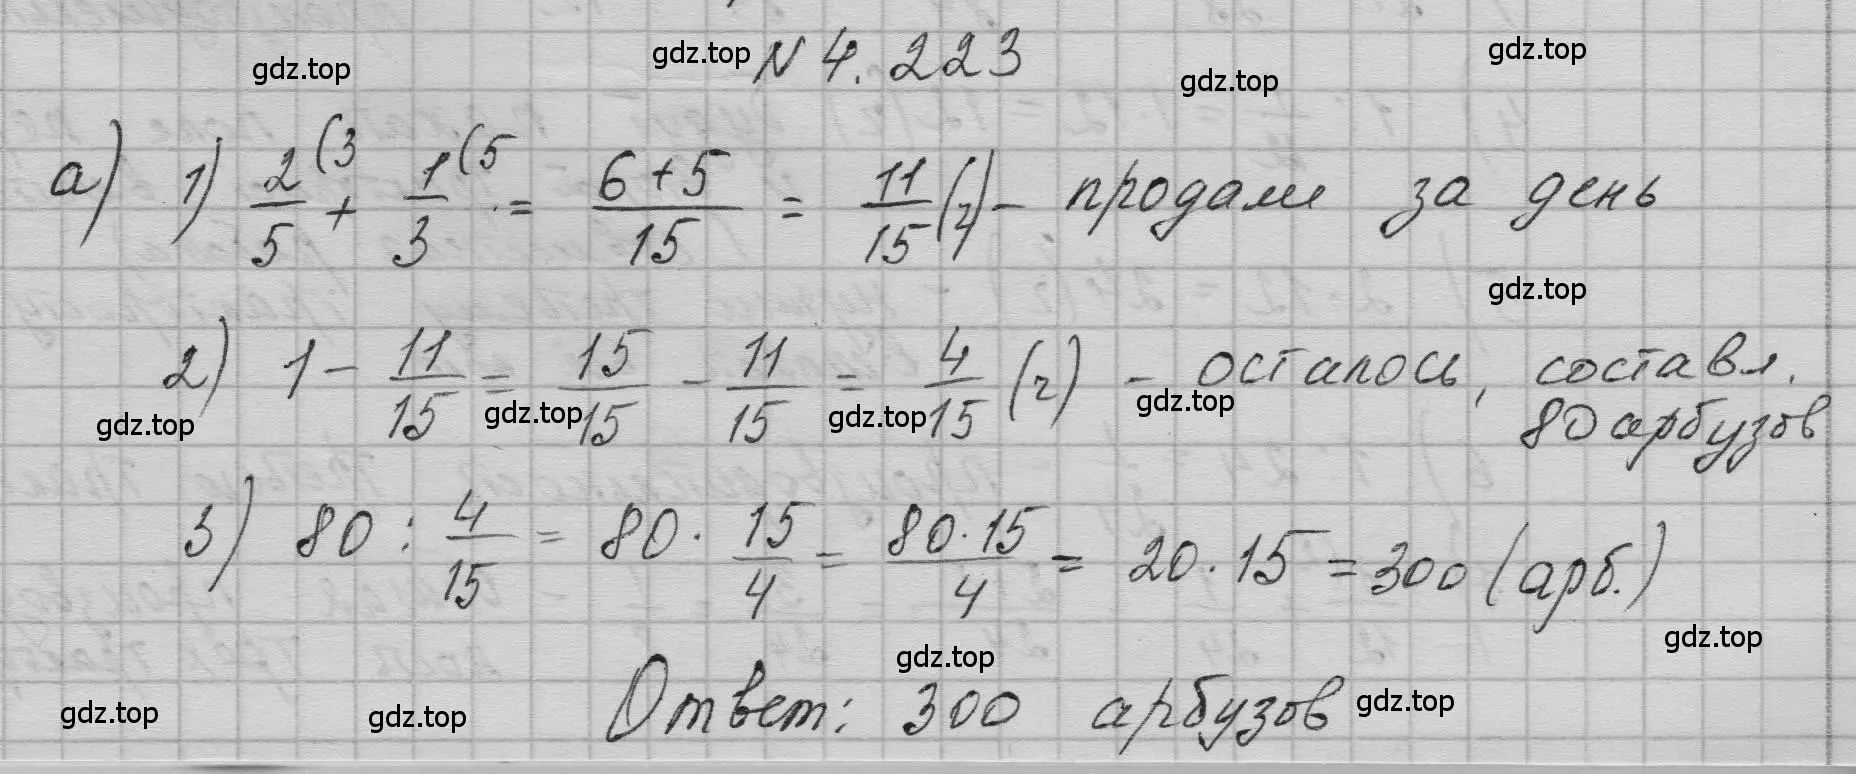 N 4.223
а) 1) 2/5 (3 + 1/3 (5 = (6+5)/15 = 11/15 (ч) - продали за день
2) 1 - 11/15 = 15/15 - 11/15 = 4/15 (ч) - осталось, составл.
80 арбузов
3) 80 : 4/15 = 80 · 15/4 = (80·15)/4 = 20·15 = 300 (арб.)
Ответ: 300 арбузов
gdz.top gdz.top gdz.top gdz.top
gdz.top
gdz.top gdz.top gdz.top gdz.top
gdz.top gdz.top
gdz.top gdz.top gdz.top